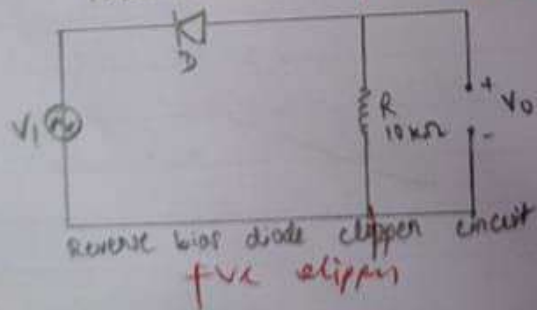 D
V₁
R
10kΩ
+
V₀
-
Reverse bias diode clipper circuit
+ve clipper